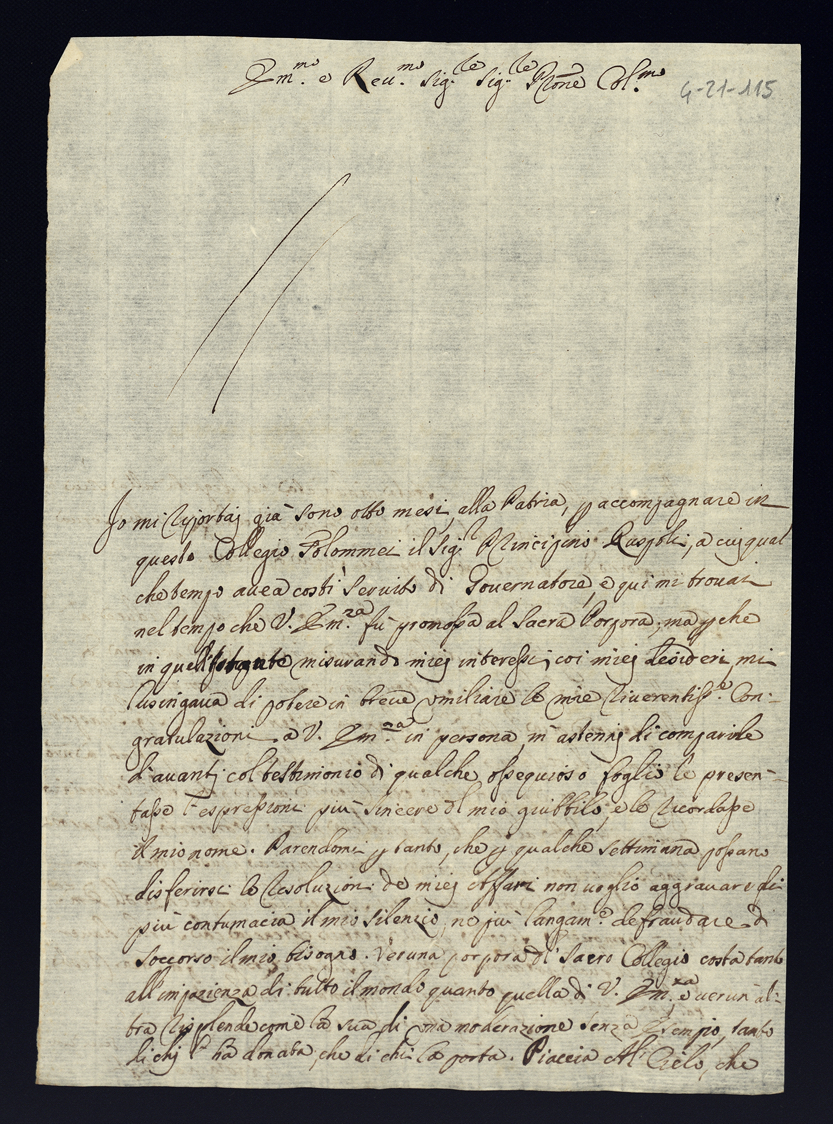 Em.mo e Reu.mo Sig.le Sig.le P̃rone Col.mo
4-21-115
Io mi riportai già sono otto mesi, alla Patria, p accompagnare in
questo Collegio Tolommei il Sig.r Principino Ruspoli, a cui qual
che tempo auea costì seruito di Gouernatore, e qui mi trouai
nel tempo che V. Em.za fù promossa al Sacra Porpora; ma p che
in quell' misurando miei interessi, coi miei desideri, mi
lusingaua di potere in breue vmiliare le mie riuerentiss.e Con-
gratulazioni a V. Em.za in persona, m' astenni di comparirle
d'auanti col testimonio di qualche ossequioso foglio le presen-
tasse l'espressioni più sincere del mio giubbilo, e le ricordasse
il mio nome. Parendomi p tanto, che p qualche settimana possano
disferirsi le resoluzioni de miei Affari non uoglio aggrauare di
più contumacia il mio silenzio, ne più defraudare di
soccorso il mio bisogno. Veruna porpora del Sacro Collegio costa tanto
all'impazienza di tutto il mondo quanto quella di V. Em.za, e uerun' al-
tra risplende come la sua di vna moderazione senza Esempio, tanto
di chi l' ha donata, che di chi la porta. Piaccia Al Cielo, che